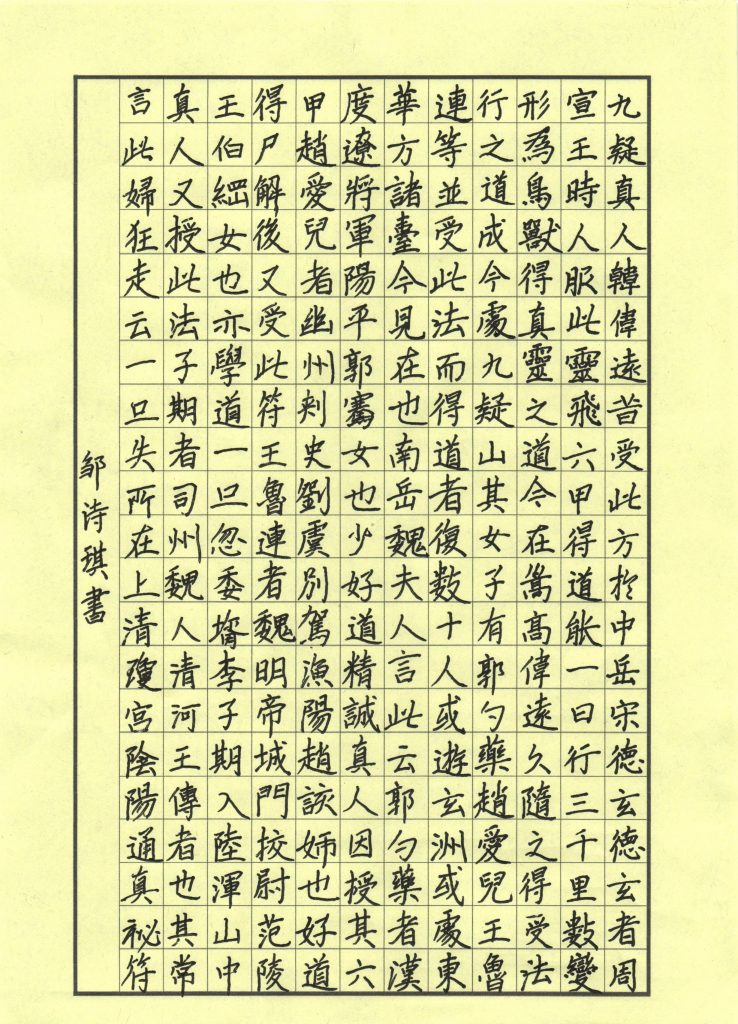 九疑真人韓偉遠昔受此方於中岳宋德玄德玄者周
宣王時人服此靈飛六甲得道能一日行三千里數變
形為鳥獸得真靈之道今在嵩高偉遠久隨之得受法
行之道成今處九疑山其女子有郭勺藥趙愛兒王魯
連等並受此法而得道者復數十人或遊玄洲或處東
華方諸臺今見在也南岳魏夫人言此云郭勺藥者漢
度遼將軍陽平郭騫女也少好道精誠真人因授其六
甲趙愛兒者幽州刺史劉虞別駕漁陽趙該姊也好道
得尸解後又受此符王魯連者魏明帝城門校尉范陵
王伯綱女也亦學道一旦忽委壻李子期入陸渾山中
真人又授此法子期者司州魏人清河王傳者也其常
言此婦狂走云一旦失所在上清瓊宮陰陽通真祕符
邹诗琪書